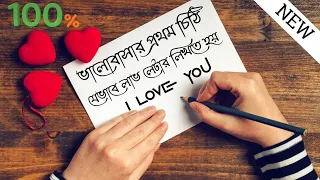 100%
NEW
ভালোবাসার প্রথম চিঠি
যেভাবে লাভ লেটার লিখতে হয়
I LOVE YOU